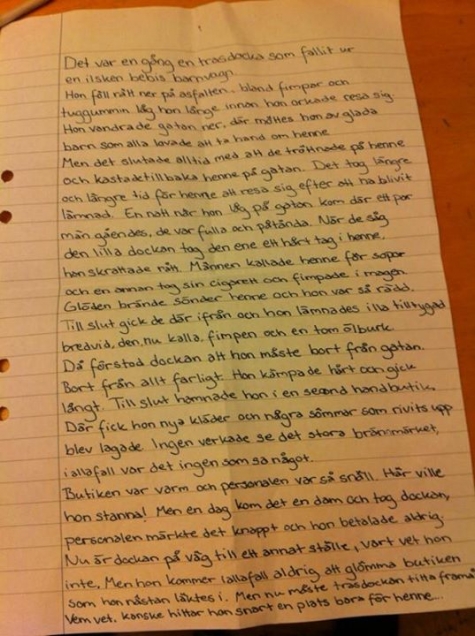 Det var en gång en trasdocka som fallit ur
en ilsken bebis barnvagn.
Hon föll rätt ner på asfalten, bland fimpar och
tuggummin låg hon länge innan hon orkade resa sig.
Hon vandrade gatan ner, där möttes hon av glada
barn som alla lovade att ta hand om henne
Men det slutade alltid med att de tröttnade på henne
och kastade tillbaka henne på gatan. Det tog längre
och längre tid för henne att resa sig efter att ha blivit
lämnad. En natt när hon låg på gatan kom där ett par
män gåendes, de var fulla och påtända. När de såg
den lilla dockan tog den ene ett hårt tag i henne,
han skrattade rått. Männen kallade henne för sopor
och en annan tog sin cigarett och fimpade i magen.
Glöden brände sönder henne och hon var så rädd.
Till slut gick de där ifrån och hon lämnades illa tilltygad
bredvid, den nu kalla, fimpen och en tom ölburk.
Då förstod dockan att hon måste bort från gatan.
Bort från allt farligt. Hon kämpade hårt och gick
långt. Till slut hamnade hon i en second handbutik.
Där fick hon nya kläder och några sömmar som rivits upp
blev lagade. Ingen verkade se det stora brännmärket,
iallafall var det ingen som sa något.
Butiken var varm och personalen var så snäll. Här ville
hon stanna! Men en dag kom det en dam och tog dockan,
personalen märkte det knappt och hon betalade aldrig.
Nu är dockan på väg till ett annat ställe, vart vet hon
inte. Men hon kommer iallafall aldrig att glömma butiken
som hon nästan läktes i. Men nu måste trasdockan titta framåt
Vem vet, kanske hittar hon snart en plats bara för henne...